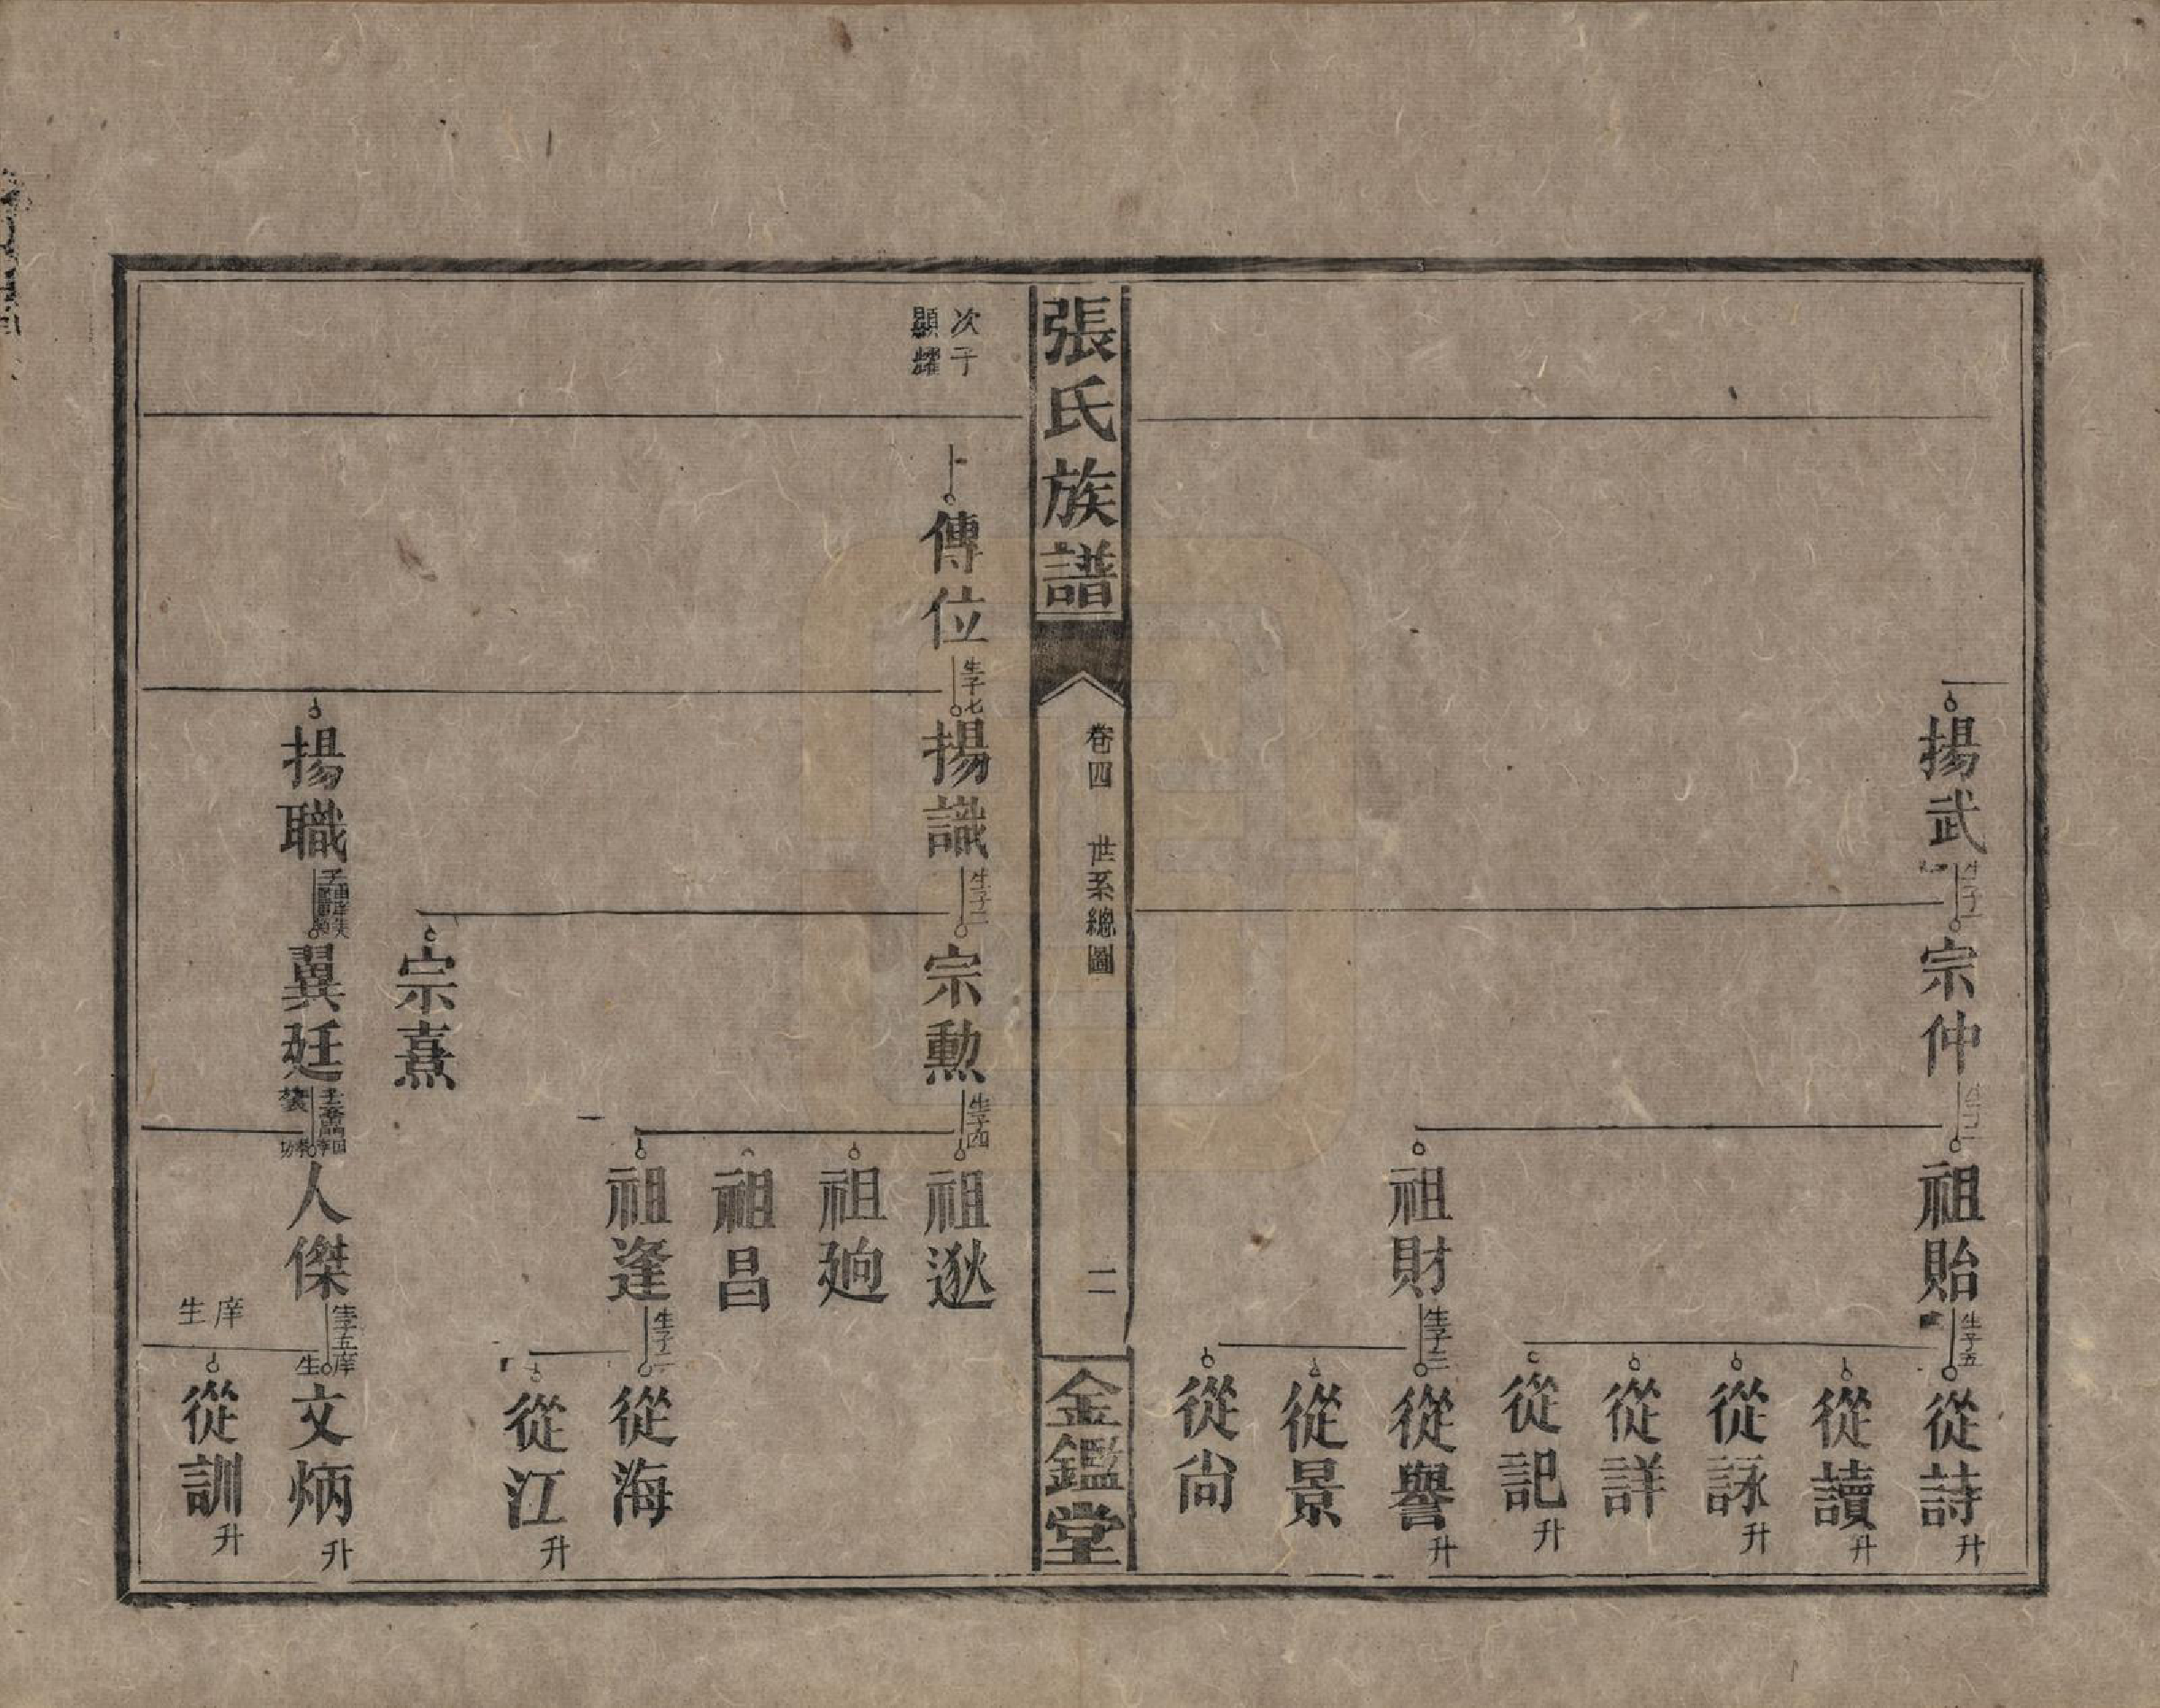 揚武
宗仲
祖貽 生子五
從詩 升
從讀 升
從詠 升
從詳
從記 升
祖財 生子三
從譽 升
從景
從尙
張氏族譜
卷四 世系總圖
二
金鑑堂
次子
顯燿
傳位 生子七
揚識 生子二
宗勲 生子四
祖逖
祖㢠
祖昌
祖逢 生子二
從海
從江 升
宗熹
揚職
翼廷
人傑 生子五
庠生
文炳 升
庠生
從訓 升